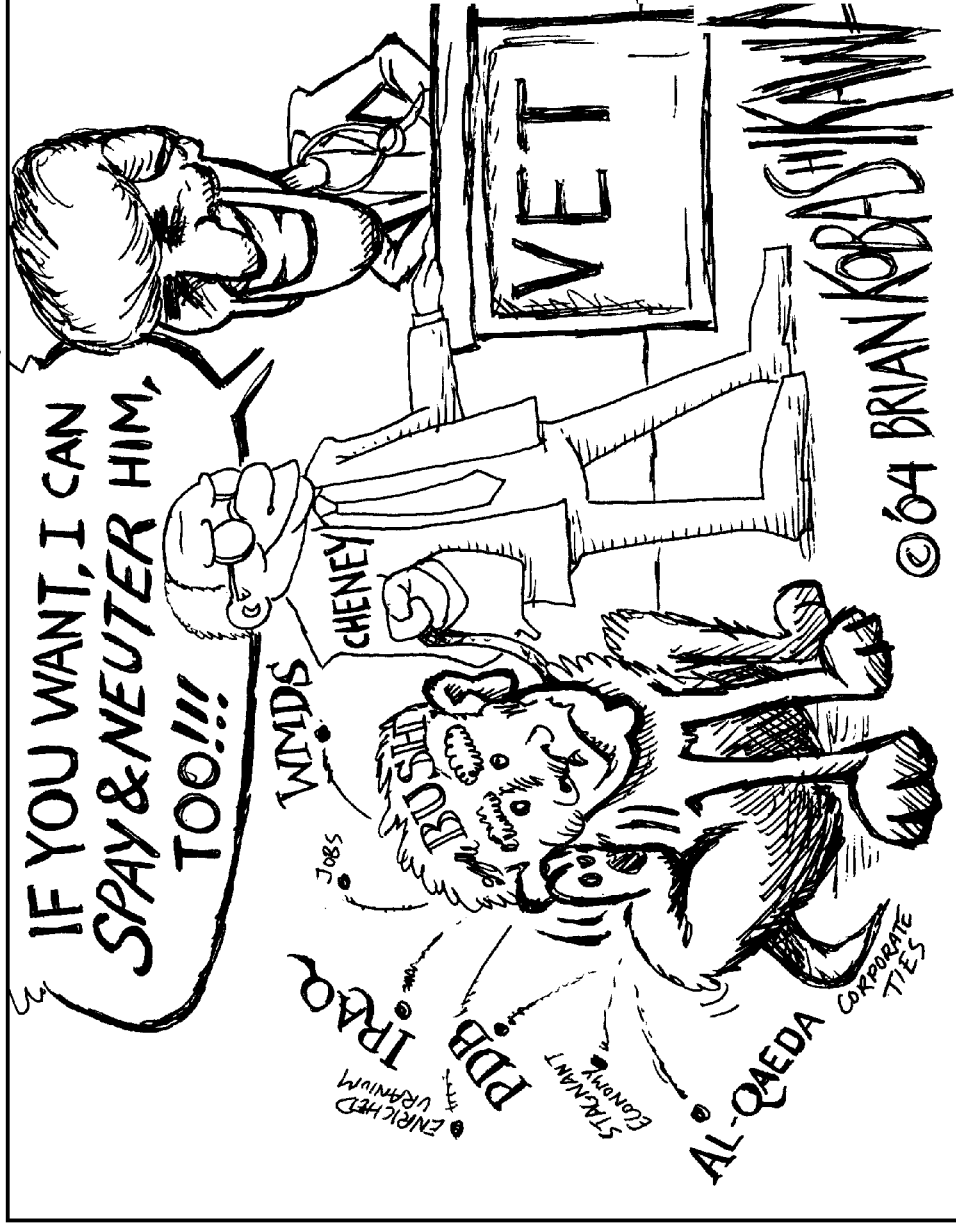 IF YOU WANT, I CAN
SPAY & NEUTER HIM,
TOO!!!
WMDS
JOBS
IRAQ
ENRICHED
URANIUM
PDB
STAGNANT
ECONOMY
AL-QAEDA
CORPORATE
TIES
BUSH
CHENEY
VET
© '04 BRIAN KOBASHIKAWA